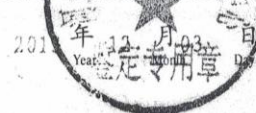 年 12 月 03 日
Year Month Day
鉴定专用章